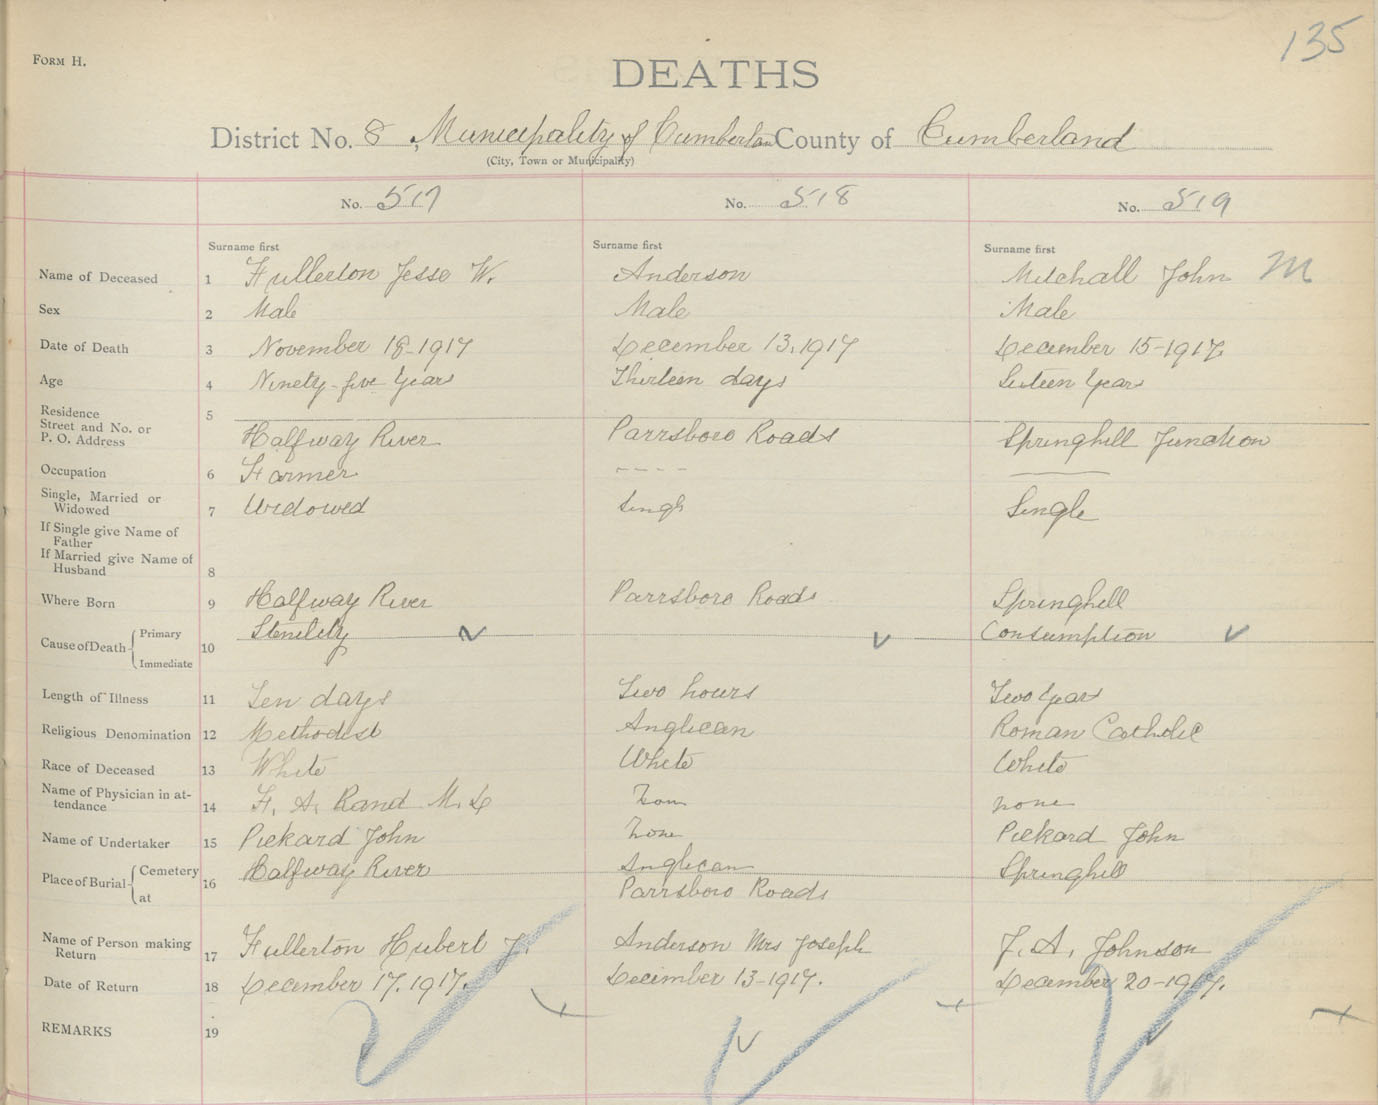 135
Form H.
DEATHS
District No. 8, Municipality of Cumberlan County of Cumberland
(City, Town or Municipality)
No. 517 No. 518 No. 519
Surname first Surname first Surname first
Name of Deceased 1 Fullerton Jesse W. Anderson Mitchall John M
Sex 2 Male Male Male
Date of Death 3 November 18-1917 December 13, 1917 December 15-1917
Age 4 Ninety-five Years Thirteen days Sixteen Years
Residence
Street and No. or
P. O. Address 5 Halfway River Parrsboro Roads Springhill Junction
Occupation 6 Farmer ----
Single, Married or
Widowed 7 Widowed Singl Single
If Single give Name of
Father
If Married give Name of
Husband 8
Where Born 9 Halfway River Parrsboro Roads Springhill
Cause of Death Primary Stenility Consumption
Immediate 10
Length of Illness 11 Ten days Two hours Two Years
Religious Denomination 12 Methodist Anglican Roman Catholic
Race of Deceased 13 White White White
Name of Physician in at-
tendance 14 F. A. Rand M. D none
Name of Undertaker 15 Pickard John Pickard John
Place of Burial Cemetery Halfway River Anglican Springhill
at 16 Parrsboro Roads
Name of Person making
Return 17 Fullerton Hubert J. Anderson Mrs Joseph J. A. Johnson
Date of Return 18 December 17. 1917. December 13-1917. December 20-1917.
REMARKS 19